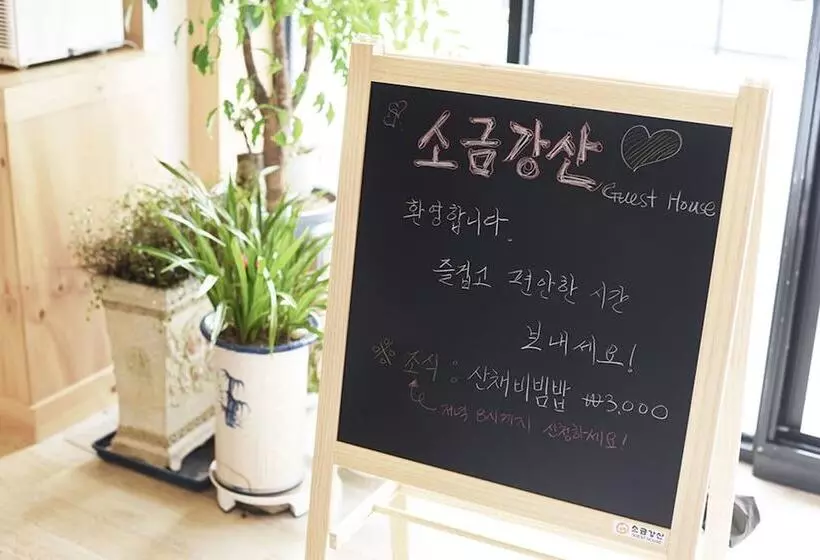 소금강산
Guest House
환영합니다.
즐겁고 편안한 시간
보내세요!
※ 조식 : 산채비빔밥 ₩3,000
저녁 8시까지 신청하세요!
소금강산
GUEST HOUSE